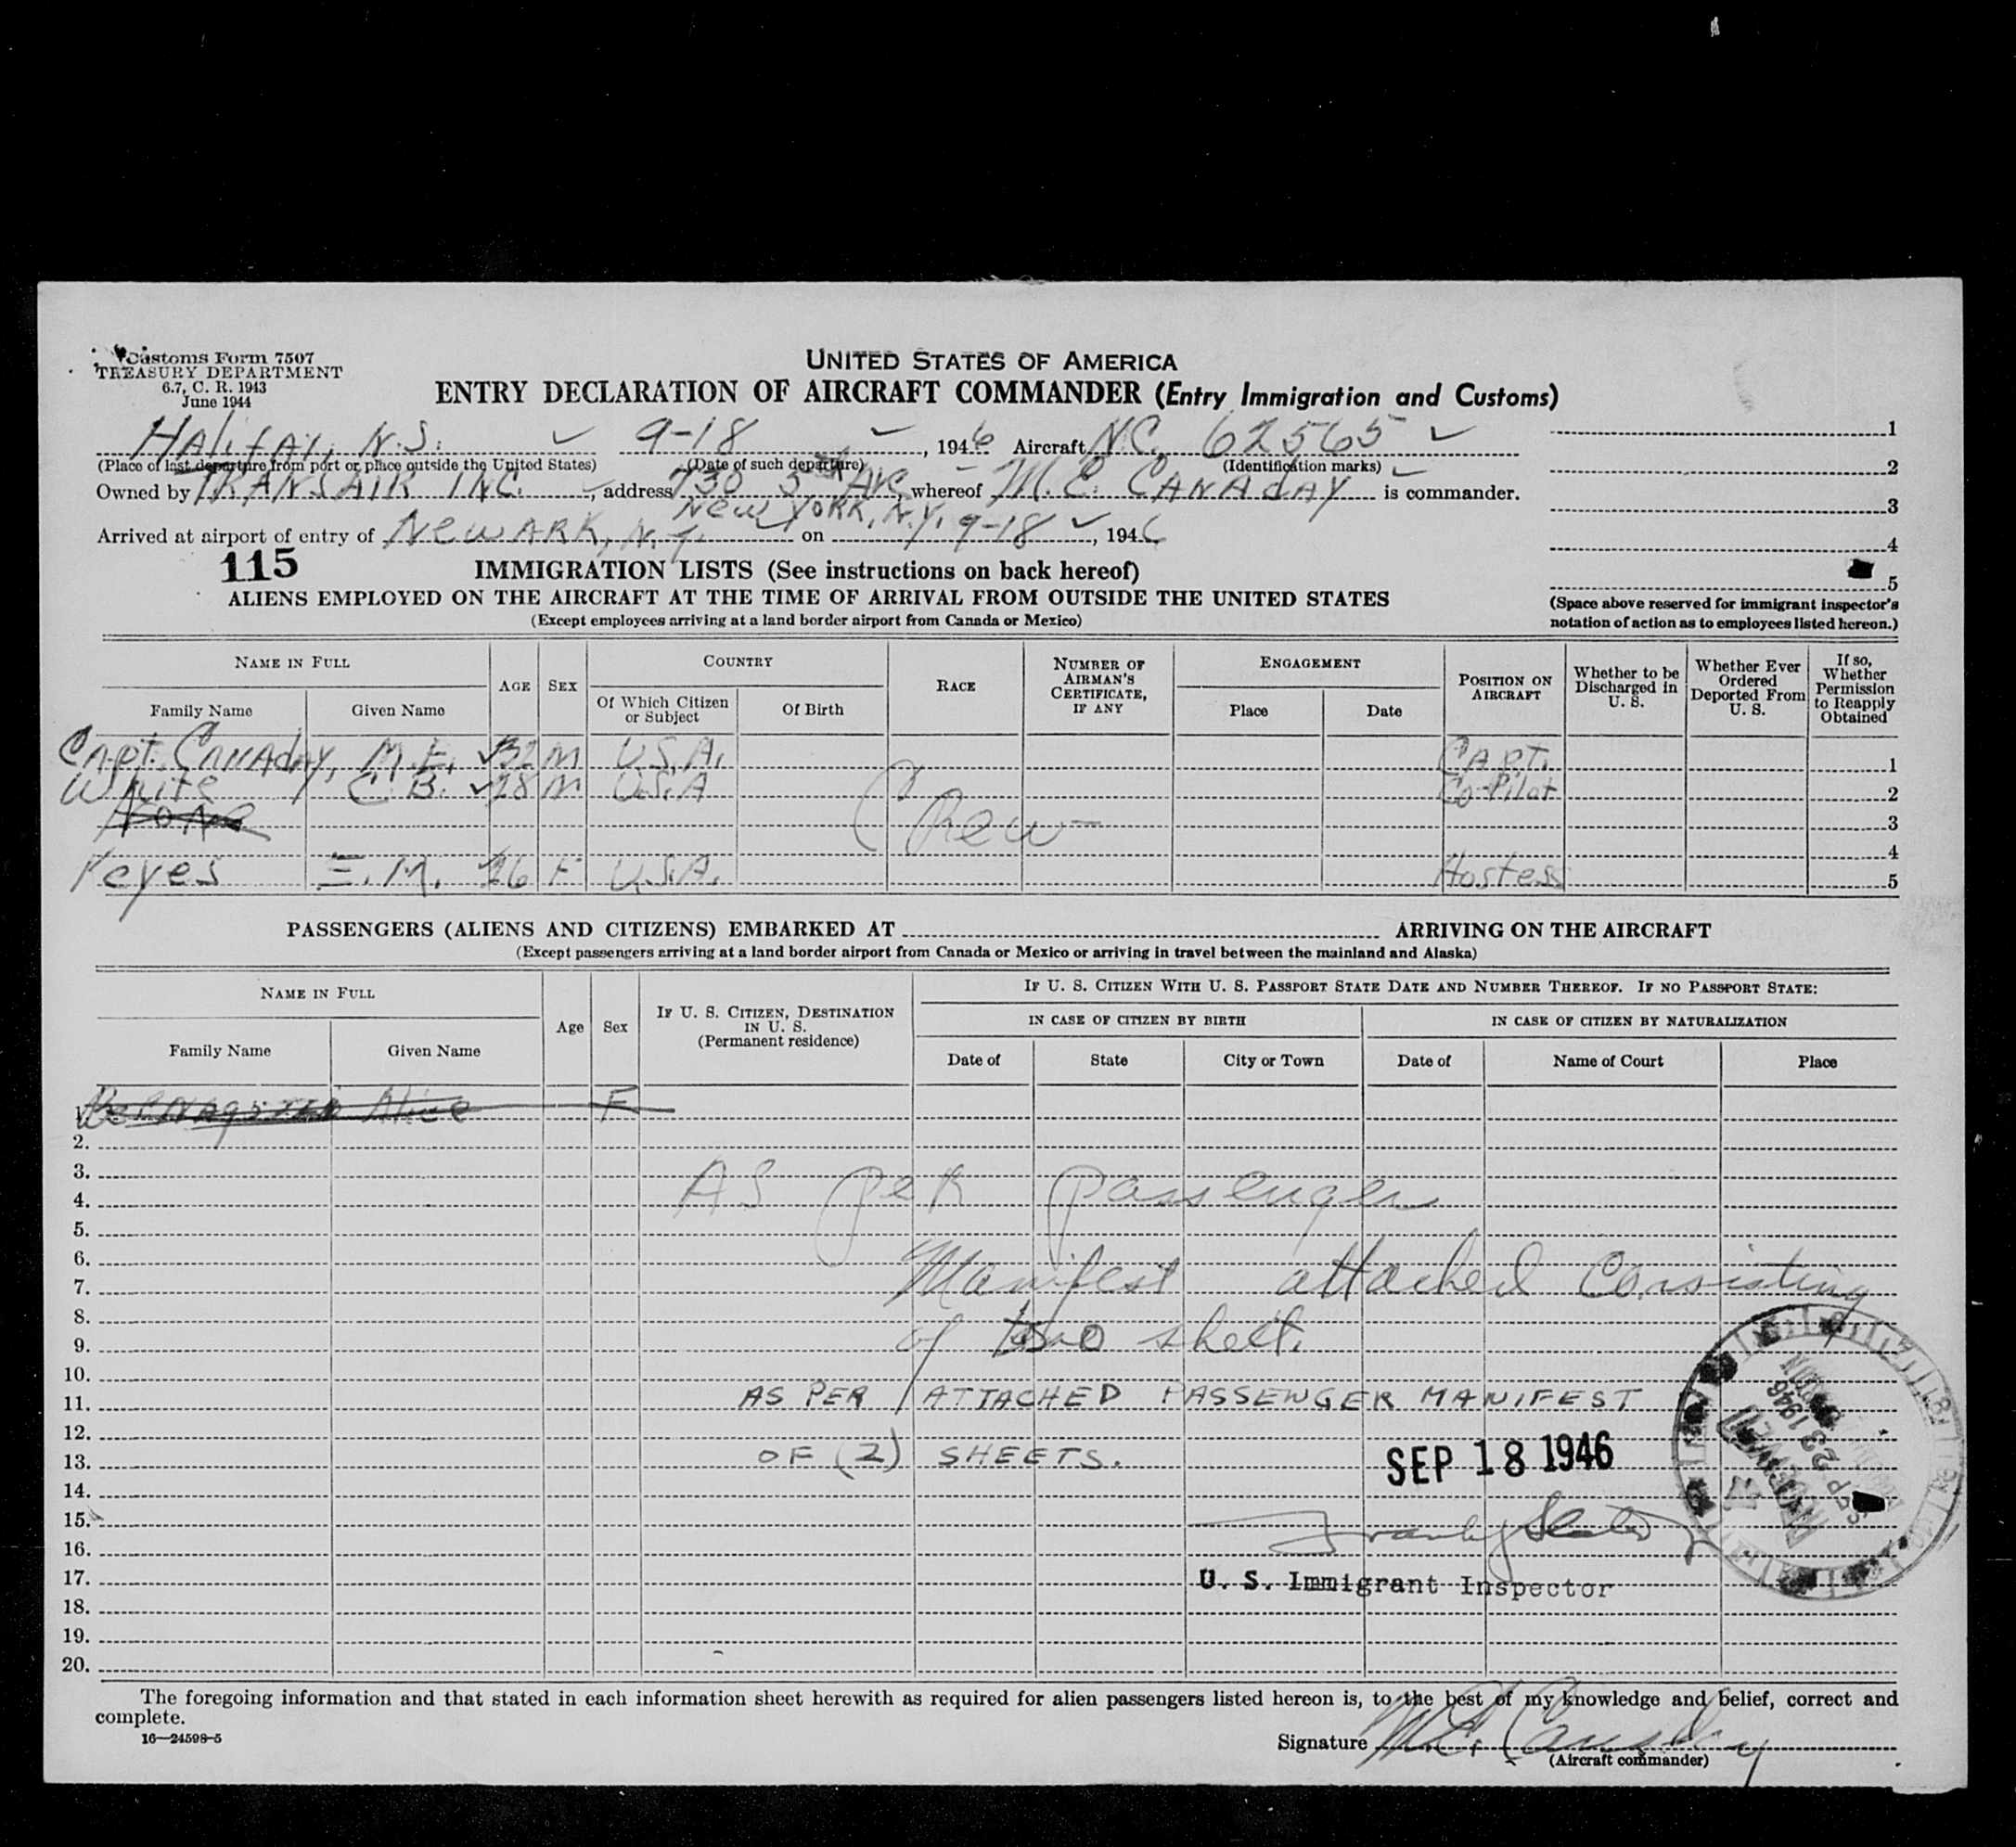 Customs Form 7507
TREASURY DEPARTMENT
6.7, C. R. 1943
June 1944
UNITED STATES OF AMERICA
ENTRY DECLARATION OF AIRCRAFT COMMANDER (Entry Immigration and Customs)
Halifax, N.S. 9-18, 1946 Aircraft N.C. 62565
(Place of last departure from port or place outside the United States) (Date of such departure) (Identification marks)
Owned by TRANSAIR INC., address 730 5th Ave whereof M.E. CANADAY is commander.
New York, N.Y.
Arrived at airport of entry of Newark, N.J. on 9-18, 1946
1
2
3
4
5
(Space above reserved for immigrant inspector's
notation of action as to employees listed hereon.)
115
IMMIGRATION LISTS (See instructions on back hereof)
ALIENS EMPLOYED ON THE AIRCRAFT AT THE TIME OF ARRIVAL FROM OUTSIDE THE UNITED STATES
(Except employees arriving at a land border airport from Canada or Mexico)
NAME IN FULL
Family Name Given Name
AGE
SEX
COUNTRY
Of Which Citizen or Subject
Of Birth
RACE
NUMBER OF AIRMAN'S CERTIFICATE, IF ANY
ENGAGEMENT
Place Date
POSITION ON AIRCRAFT
Whether to be Discharged in U. S.
Whether Ever Ordered Deported From U. S.
If so, Whether Permission to Reapply Obtained
Capt. Canaday, M.E. 32 M U.S.A. CAPT. 1
White C.B. 28 M U.S.A Co-Pilot 2
None Crew 3
4
Keyes E.M. 26 F U.S.A. Hostess 5
PASSENGERS (ALIENS AND CITIZENS) EMBARKED AT ARRIVING ON THE AIRCRAFT
(Except passengers arriving at a land border airport from Canada or Mexico or arriving in travel between the mainland and Alaska)
NAME IN FULL
Family Name Given Name
Age
Sex
IF U. S. CITIZEN, DESTINATION IN U. S.
(Permanent residence)
IF U. S. CITIZEN WITH U. S. PASSPORT STATE DATE AND NUMBER THEREOF. IF NO PASSPORT STATE:
IN CASE OF CITIZEN BY BIRTH
IN CASE OF CITIZEN BY NATURALIZATION
Date of State City or Town Date of Name of Court Place
1. Alice F
2.
3.
4. AS per passenger
5.
6.
7. Manifest attached consisting
8.
9. of two sheet.
10.
11. AS PER ATTACHED PASSENGER MANIFEST
12.
13. OF (2) SHEETS. SEP 18 1946
14.
15.
16.
17. U. S. Immigrant Inspector
18.
19.
20.
SEP 23 1946
The foregoing information and that stated in each information sheet herewith as required for alien passengers listed hereon is, to the best of my knowledge and belief, correct and
complete.
16—24598-5
Signature M.E. Canaday
(Aircraft commander)